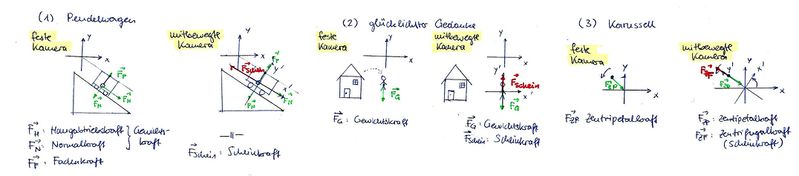 (1) Pendelwagen
feste
Kamera
y
x
F_P
F_N
F_H
F_H : Hangabtriebskraft
F_N : Normalkraft
Gewichts-
kraft
F_P : Fadenkraft
mitbewegte
Kamera
y
x
y'
x'
F_Schein
F_P
F_N
F_H
-"-
F_Schein : Scheinkraft
(2) glücklichster Gedanke
feste
Kamera
y
x
F_G
F_G : Gewichtskraft
mitbewegte
Kamera
y
x
y'
x'
F_Schein
F_G
F_G : Gewichtskraft
F_Schein : Scheinkraft
(3) Karussell
feste
Kamera
y
x
F_ZP
F_ZP Zentripetalkraft
mitbewegte
Kamera
y'
x'
x
F_ZP : Zentripetalkraft
F_ZF : Zentrifugalkraft
(Scheinkraft)